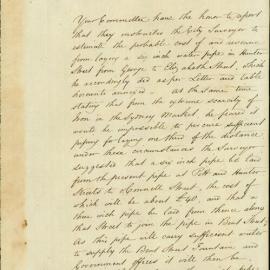 Your Committee have the honor to report
that they instructed the City Surveyor to
estimate the probable cost of and revenue
from laying a six inch water pipe in Hunter
Street from George to Elizabeth Street, which
he accordingly did as per Letter and table
hereunto annexed. At the same time
stating that from the extreme scarcity of
Iron in the Sydney Market, he feared it
would be impossible to procure sufficient
piping for laying one third of the distance
under these circumstances the Surveyor
suggested that a six inch pipe be laid
from the present pipe at Pitt and Hunter
Streets to O'Connell Street, the cost of
which will be about £40, and that a
three inch pipe be laid from thence along
that Street to join the pipe in Bent Street,
As this pipe will carry sufficient water
to supply the Bent Street Fountain and
Government Offices it will then be